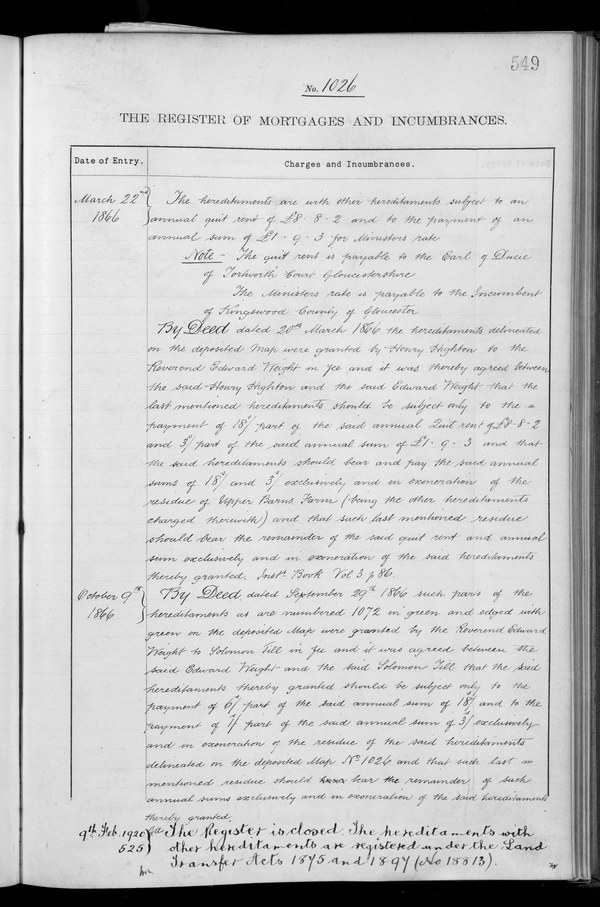 549
No. 1026
THE REGISTER OF MORTGAGES AND INCUMBRANCES.
Date of Entry.
Charges and Incumbrances.
March 22nd
1866
The hereditaments are with other hereditaments subject to an
annual quit rent of £8-8-2 and to the payment of an
annual sum of £1-9-3 for Ministers rate
Note - The quit rent is payable to the Earl of Ducie
of Tortworth Court Gloucestershire
The Ministers rate is payable to the Incumbent
of Kingswood County of Gloucester
By Deed dated 20th March 1866 the hereditaments delineated
on the deposited Map were granted by Henry Highton to the
Reverend Edward Weight in fee and it was thereby agreed between
the said Henry Highton and the said Edward Weight that the
last mentioned hereditaments should be subject only to the =
payment of 18/ part of the said annual Quit rent of £8-8-2
and 3/ part of the said annual sum of £1-9-3 and that
the said hereditaments should bear and pay the said annual
sums of 18/ and 3/ exclusively and in exoneration of the
residue of Upper Barns Farm (being the other hereditaments
charged therewith) and that such last mentioned residue
should bear the remainder of the said quit rent and annual
sum exclusively and in exoneration of the said hereditaments
thereby granted. Inst. Book Vol 3 p 86.
October 9th
1866
By Deed dated September 29th 1866 such parts of the
hereditaments as are numbered 1072 in green and edged with
green on the deposited Map were granted by the Reverend Edward
Weight to Solomon Till in fee and it was agreed between the
said Edward Weight and the said Solomon Till that the said
hereditaments thereby granted should be subject only to the
payment of 6/ part of the said annual sum of 18/ and to the
payment of 1/ part of the said annual sum of 3/ exclusively
and in exoneration of the residue of the said hereditaments
delineated on the deposited Map No 1026 and that such last =
mentioned residue should bear the remainder of such
annual sums exclusively and in exoneration of the said hereditaments
thereby granted.
9th Feb. 1920
525
The Register is closed. The hereditaments with
other hereditaments are registered under the Land
Transfer Acts 1875 and 1897 (No 18813).